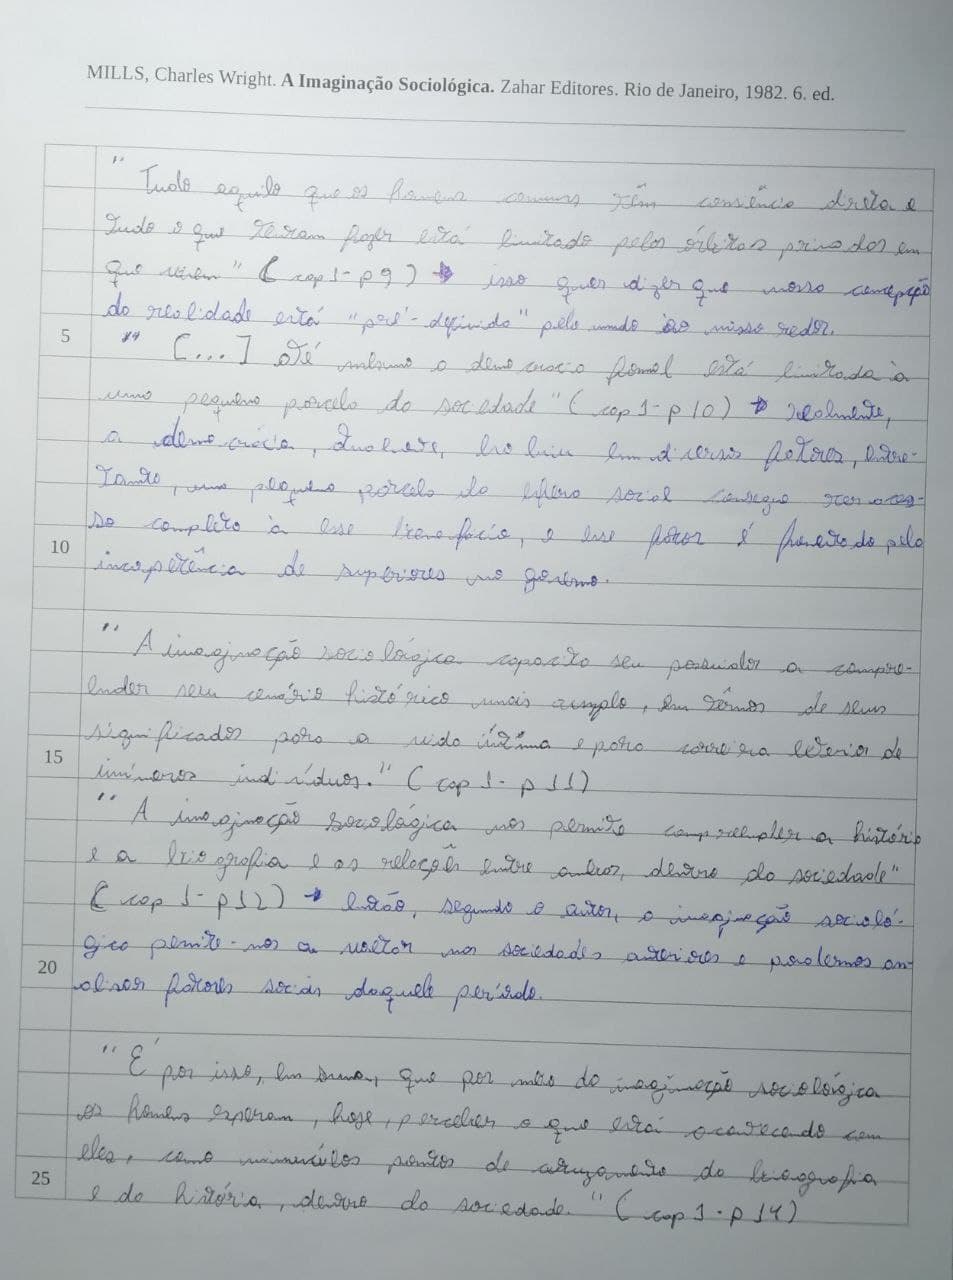 MILLS, Charles Wright. A Imaginação Sociológica. Zahar Editores. Rio de Janeiro, 1982. 6. ed.
" Tudo aquilo que os homens comuns têm consência direta e
tudo o que tentam fazer está limitado pelas órbitas privadas em
que vivem" ( cap 1- p 9 ) → isso quer dizer que nossa concepção
da realidade está "pré-definida" pelo mundo ao nosso redor.
5 " [...] até mesmo a democracia formal está limitada à
uma pequena parcela da sociedade" ( cap 1- p 10 ) → realmente,
a democrácia, atualmente, em diversos fatores, entre-
tanto, uma pequena parcela da esfera social consegue ter aces-
so completo à esse benefício, e esse fator é pelo
10 incopetência de superiores no governo.
" A imaginação sociológica capacita seu possuidor a compre-
ender seu cenário histórico mais amplo, em têrmos de seus
significados para a vida íntima e para carreira exterior de
15 inúmeros indivíduos." ( cap 1- p 11)
" A imaginação sociológica nos permite compreender a história
e a biografia e as relações entre ambas, dentro da sociedade"
( cap 1- p 12) → então, segundo o autor, a imaginação socioló-
gica permite-nos a voltar nas sociedades anteriores e podermos an-
20 alisar fatores sociais daquele período.
" É por isso, em suma, que por meio da imaginação sociológica
os homens esperam, hoje, perceber o que está acontecendo com
eles, como minúsculos pontos de cruzamento da biografia
25 e da história, dentro da sociedade. " ( cap 1- p 14)